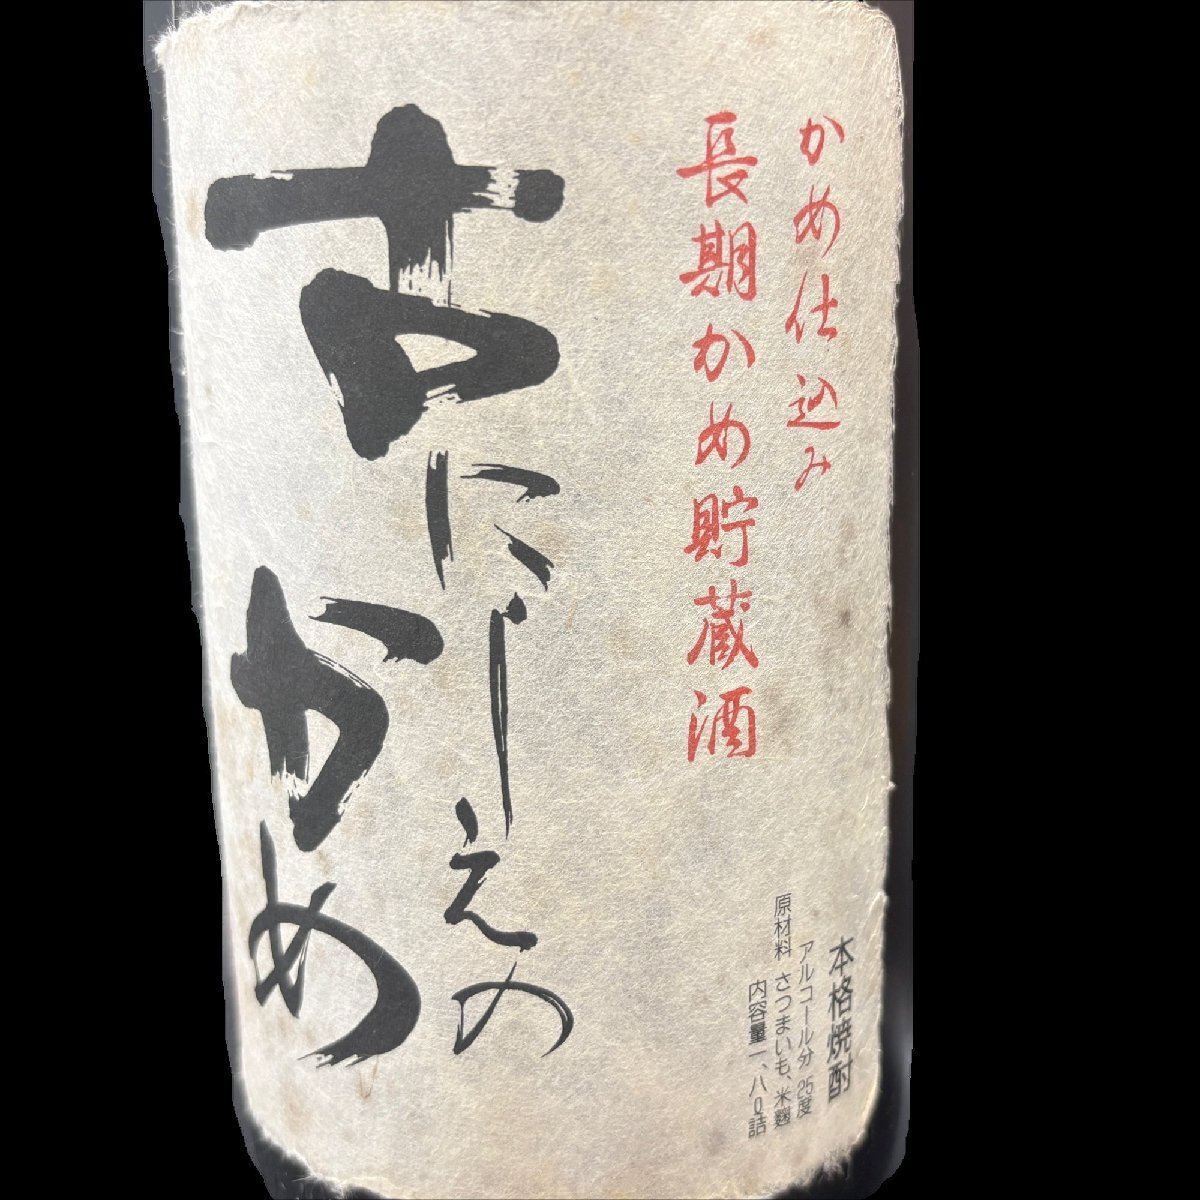 かめ仕込み
長期かめ貯蔵酒
古にしえの
かめ
本格焼酎
アルコール分 25度
原材料 さつまいも、米麹
内容量一、八ℓ詰